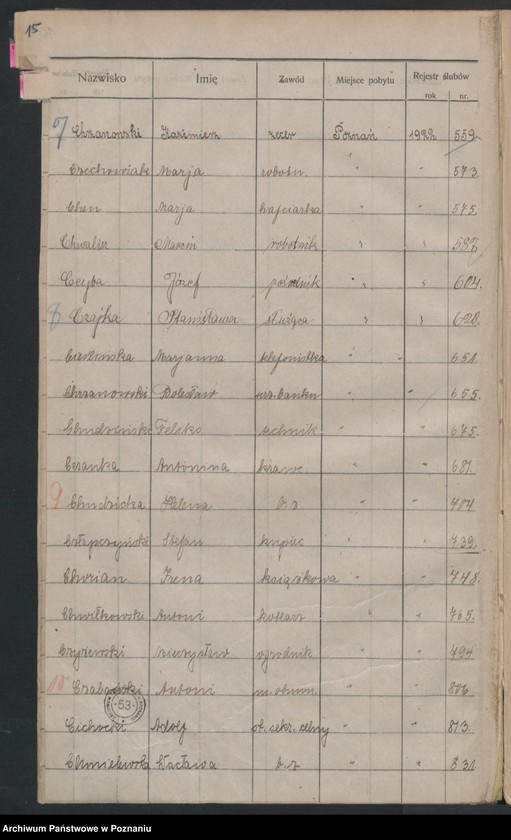 15
Nazwisko Imię Zawód Miejsce pobytu Rejestr ślubów
rok nr.
7 Chrzanowski Kazimierz zecer Poznań 1922 559
Czechowiak Marja robotn. " " 573.
Chen Marja hafciarka " " 575.
Chwalisz Marcin robotnik " " 587
Cegba Józef pośrednik " " 604.
8 Czajka Stanisława służąca " " 620.
Marjanna telefonistka " " 651.
Chrzanowski Bolesław urz. banku " " 655.
Feliks technik " " 675.
Czanka Antonina krawc. " " 681.
9 Chudzicka Helena b. z. " " 704
Człapczyński Stefan kupiec " " 739.
Chwian Irena książkowa " " 748.
Chwiłkowski Antoni kotlarz " " 765.
Czyżewski Mieczysław ogrodnik " " 794
10 Antoni " " 806.
-53-
Cichocki Adolf celny " " 813.
Chmielewska Wacława b. z. " " 831
Archiwum Państwowe w Poznaniu